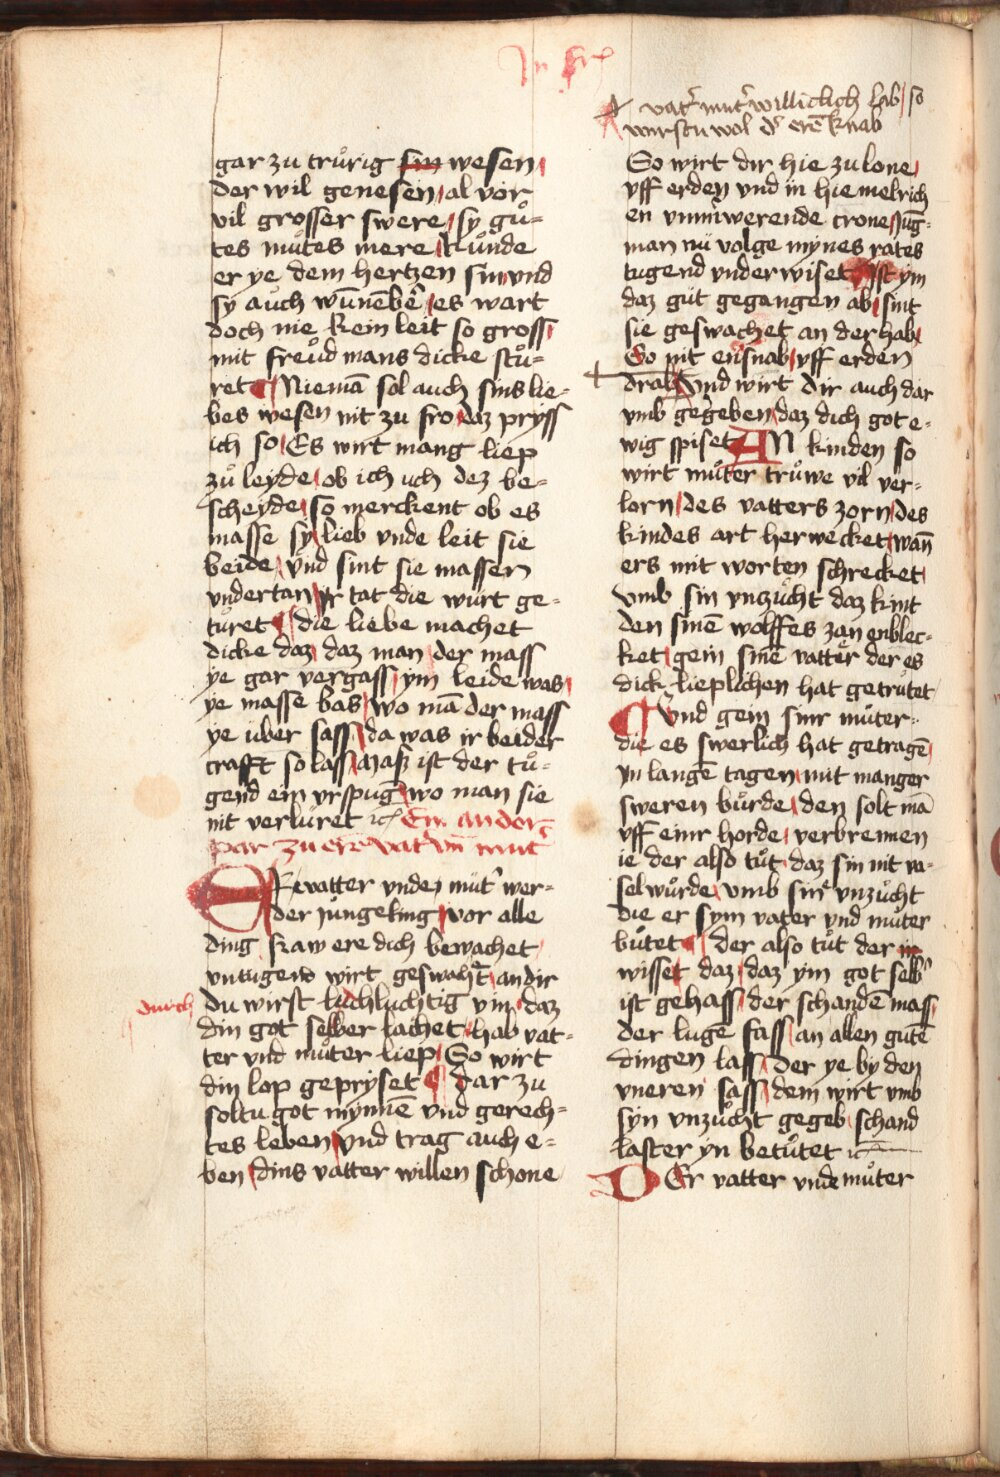 gar zu truͦrig sin wesen
der wil genesen / al vor
vil grosser swere / sy guͦ-
tes muͦtes mere / kuͦnde
er ye dem hertzen sin vnd
sy auch wuͦnēbē / es wart
doch nie kein leit so gross /
mit freuͦd mans dicke stuͦ-
ret ¶ Niemā sol auch sins lie-
bes wesen nit zu fro / daz pryss
ich so / Es wirt mang liep
zuͦ leyde / ob ich uch dez be-
scheyde / so merckent ob es
masse sy / lieb vnde leit sie
beide / vnd sint sie massen
vndertan / ir tat die wurt ge-
tuͦret ¶ die liebe machet
dicke daz / daz man der mass
ye gar vergass / ym leide was /
ye masse bas / wo mā der mass
ye uber sass / da was ir beider
crafft so lass / Masz ist der tuͦ-
gend ein vrspūg / wo man sie
nit verluret ꝛc̄ Ein ander
par zu ere vat' vn̄ mut'
ER vatter vnde muͦt' wer-
der jungeling / vor alle
ding / fraw ere dich bewachet /
vntugend wirt geswacht / an dir
du wirst luchluchtig vm daz
durch
din got selber lachet / hab vat-
ter vnd muͦter liep / So wirt
din lop gepryset ¶ dar zu
soltu got mynnē vnd gerech-
tes leben / vnd trag auch e-
ben / dins vatter willen schone
vat' mut' willicklich lab / so
wirstu wol d' erē knab
So wirt dir hie zu lone /
vff erden vnd in hie melrich
en vmmwerende crone / Jūg-
man nu volge mynes rates
tugend vnderwiset / Ist ym
daz guͦt gegangen ab / sint
sie geswachet an der hab /
So nit ensnab / vff erden
drab / vnd wirt dir auch dar
vmb gegeben / daz dich got e-
wig spiset AN kinden so
wirt muͦter truͦwe vil ver-
lorn / des vatters zorn / des
kindes art herwecket / wan̄
ers mit worten schrecket /
vmb sin vnzuͦcht daz kint
den sinē wolffes zan enblec-
ket / gein sinē vatter der es
dick lieplichen hat getrutet
¶ Vnd gein sinr muͦter
die es swerlich hat getragē /
yn langē tagen / mit manger
sweren buͦrde / den solt mā
vff einr horde / verbrennen
ie der also tuͦt / daz sin nit va-
sel wuͦrde / vmb sin' vnzuͦcht
die er sym vater vnd muͦter
buͦtet ¶ der also tuͦt der in
wisset daz / daz ym got selb'
ist gehass / der schandē mas /
der lugē fass / an allen gutē
dingen lass / der ye by den
vneren sass / dem wirt vmb
syn vnzuͦcht gegeb / schand
laster yn betuͦtet ꝛc̄
DEr vatter vnde muͦter